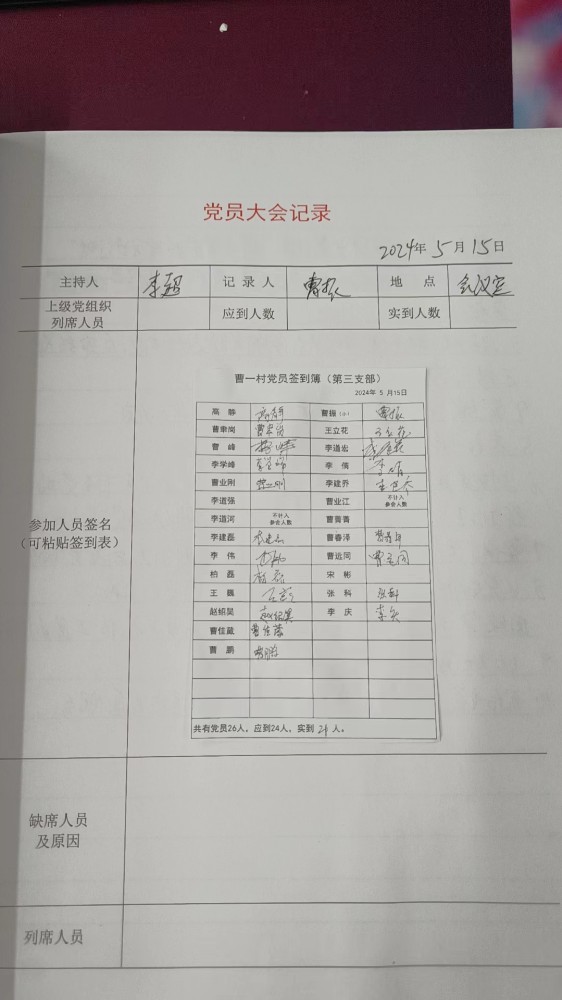 党员大会记录
2024年5月15日
主持人 李超 记录人 曹振 地点 会议室
上级党组织列席人员 应到人数 实到人数
参加人员签名
（可粘贴签到表）
曹一村党员签到簿（第三支部）
2024年 5 月15日
高静 高静 曹振 曹振
曹聿岗 曹聿岗 王立花 王立花
曹峰 曹峰 李道宏
李学峰 李学峰 李倩 李倩
曹业刚 曹业刚 李建乔
李道强 曹业江 不计入参会人数
李道河 不计入参会人数 曹霄霄
李建磊 曹春泽
李伟 曹远同 曹远同
柏磊 柏磊 宋彬
王巍 张科 张科
赵绍昊 赵绍昊 李庆 李庆
曹佳葳 曹佳葳
曹鹏 曹鹏
共有党员26人，应到24人，实到21人。
缺席人员
及原因
列席人员